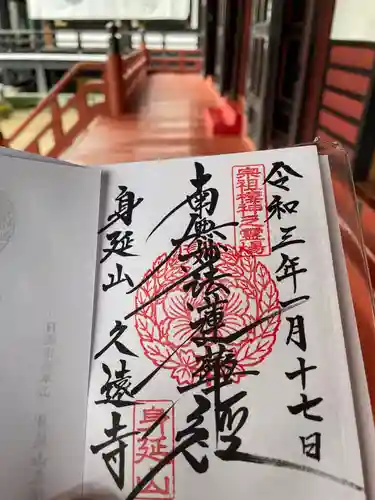 令和三年一月十七日
宗祖棲神之霊場
南無妙法蓮華経
身延山
久遠寺
身延山